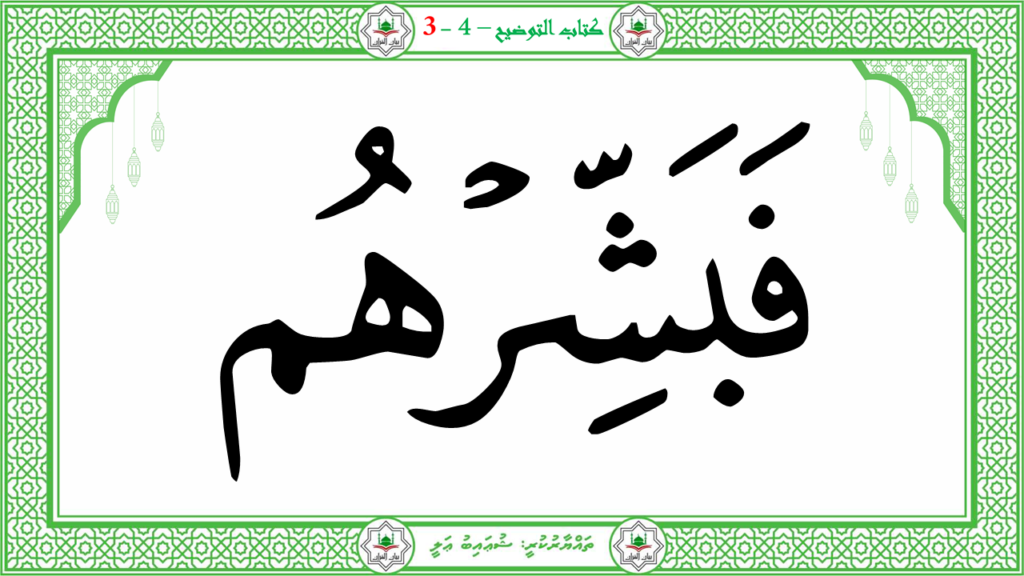 كتاب التوضيح – 4 - 3
فَبَشِّرْهُم
ތައްޔާރުކުރީ: ޝުޢައިބު ޢަލީ